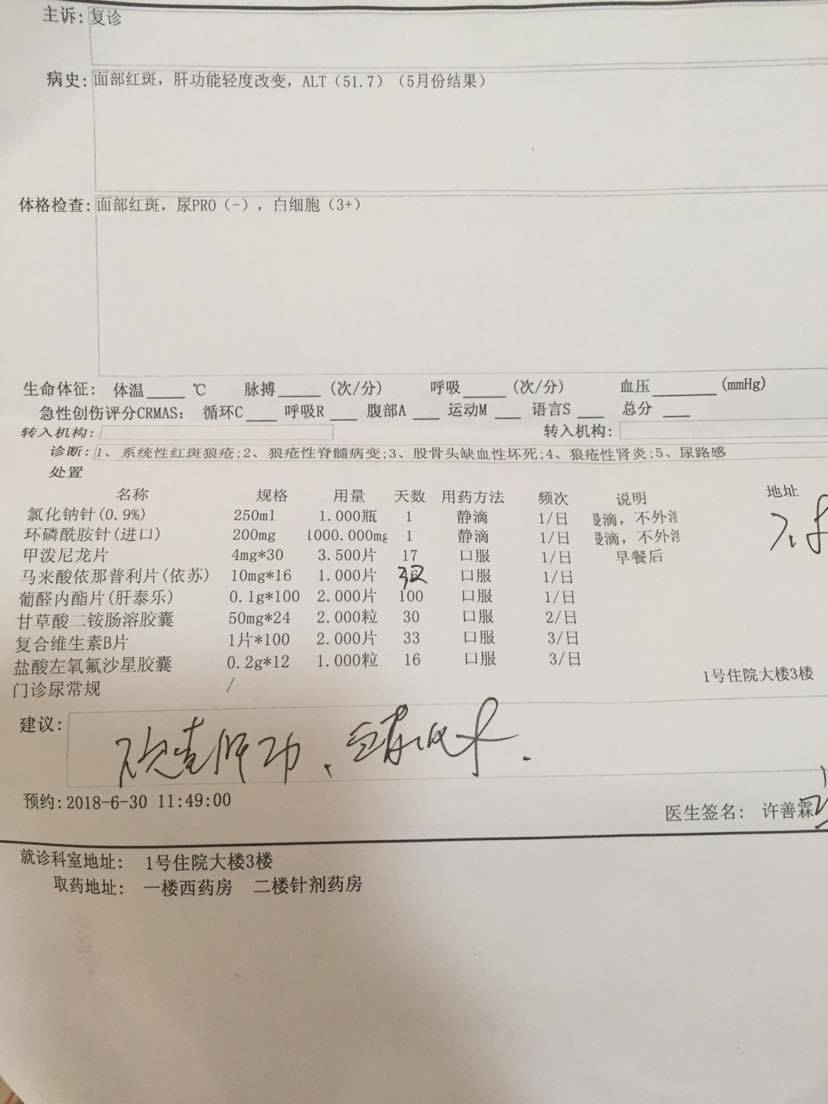 主诉: 复诊
病史: 面部红斑, 肝功能轻度改变, ALT (51.7) (5月份结果)
体格检查: 面部红斑, 尿PRO (-) , 白细胞 (3+)
生命体征: 体温____℃ 脉搏____(次/分) 呼吸____(次/分) 血压____(mmHg)
急性创伤评分CRMAS: 循环C___ 呼吸R___ 腹部A___ 运动M___ 语言S___ 总分___
转入机构: 转入机构:
诊断: 1、系统性红斑狼疮;2、狼疮性脊髓病变;3、股骨头缺血性坏死;4、狼疮性肾炎;5、尿路感
处置
名称 规格 用量 天数 用药方法 频次 说明 地址
氯化钠针(0.9%) 250ml 1.000瓶 1 静滴 1/日 慢滴, 不外渗
环磷酰胺针(进口) 200mg 1000.000mg 1 静滴 1/日 慢滴, 不外渗
甲泼尼龙片 4mg*30 3.500片 17 口服 1/日 早餐后
马来酸依那普利片(依苏) 10mg*16 1.000片 口服 1/日
葡醛内酯片(肝泰乐) 0.1g*100 2.000片 100 口服 1/日
甘草酸二铵肠溶胶囊 50mg*24 2.000粒 30 口服 2/日
复合维生素B片 1片*100 2.000片 33 口服 3/日
盐酸左氧氟沙星胶囊 0.2g*12 1.000粒 16 口服 3/日
门诊尿常规 / 1号住院大楼3楼
建议:
预约:2018-6-30 11:49:00
医生签名: 许善霖
就诊科室地址: 1号住院大楼3楼
取药地址: 一楼西药房 二楼针剂药房